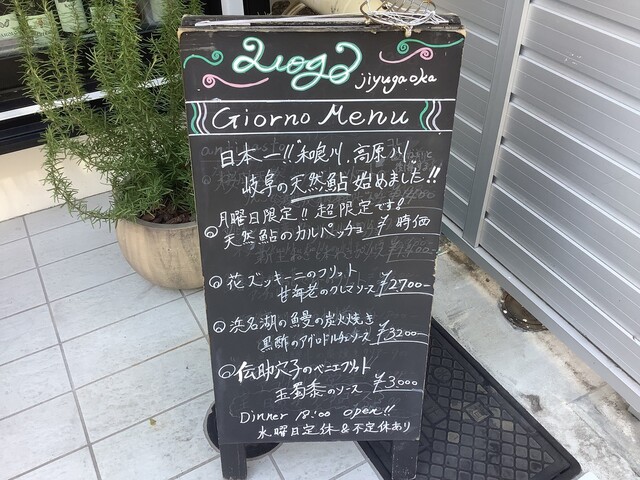 jiyugaoka
Giorno Menu
日本一!! 和良川、高原川、
岐阜の天然鮎 始めました!!
月曜日限定!! 超限定です!
天然鮎のカルパッチョ ¥ 時価
花ズッキーニのフリット
甘海老のクレマソース ¥2700-
浜名湖の鰻の炭火焼き
黒酢のアグロドルチェソース ¥3200-
伝助穴子のベニエフリット
玉蜀黍のソース ¥3000
Dinner 18:00 open!!
水曜日定休&不定休あり